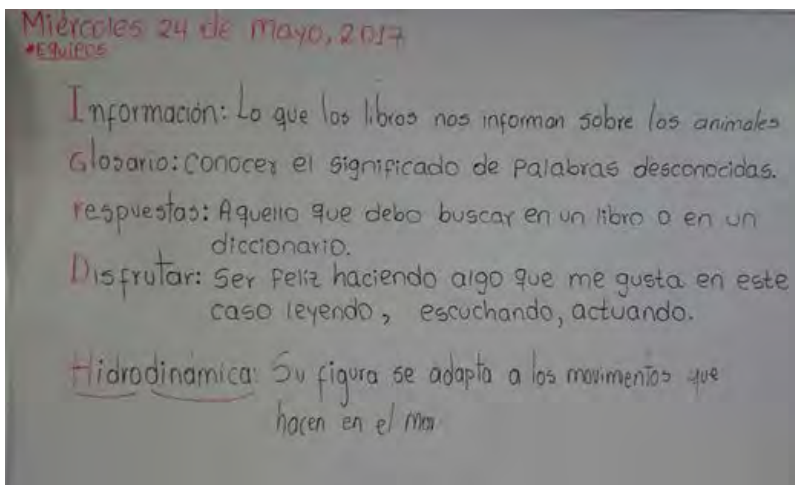 Miércoles 24 de mayo, 2017
*EQUIPOS
Información: Lo que los libros nos informan sobre los animales
Glosario: conocer el significado de palabras desconocidas.
respuestas: Aquello que debo buscar en un libro o en un
diccionario.
Disfrutar: Ser feliz haciendo algo que me gusta en este
caso leyendo, escuchando, actuando.
Hidrodinámica: Su figura se adapta a los movimientos que
hacen en el mar